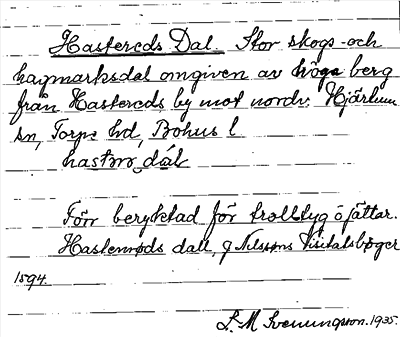 Hastereds Dal. Stor skogs- och
hagmarksdal omgiven av höga berg
från Hastereds by mot nordv. Hjärtum
sn, Torpe hd, Bohus l.
dal
Förr beryktad för trolltyg o jättar.
Hastenrøds dall, J Nilssøns Visitatsbøger
1594.
L. M. Svenungsson. 1935.